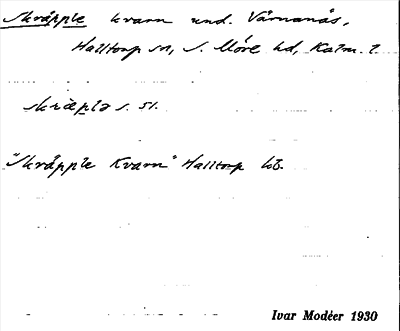 Skräpple kvarn und. Värnanäs,
Halltorp sn, S. Möre hd, Kalm. l.
skräplə s. 51.
"Skräpple Kvarn" Halltorp kb.
Ivar Modéer 1930